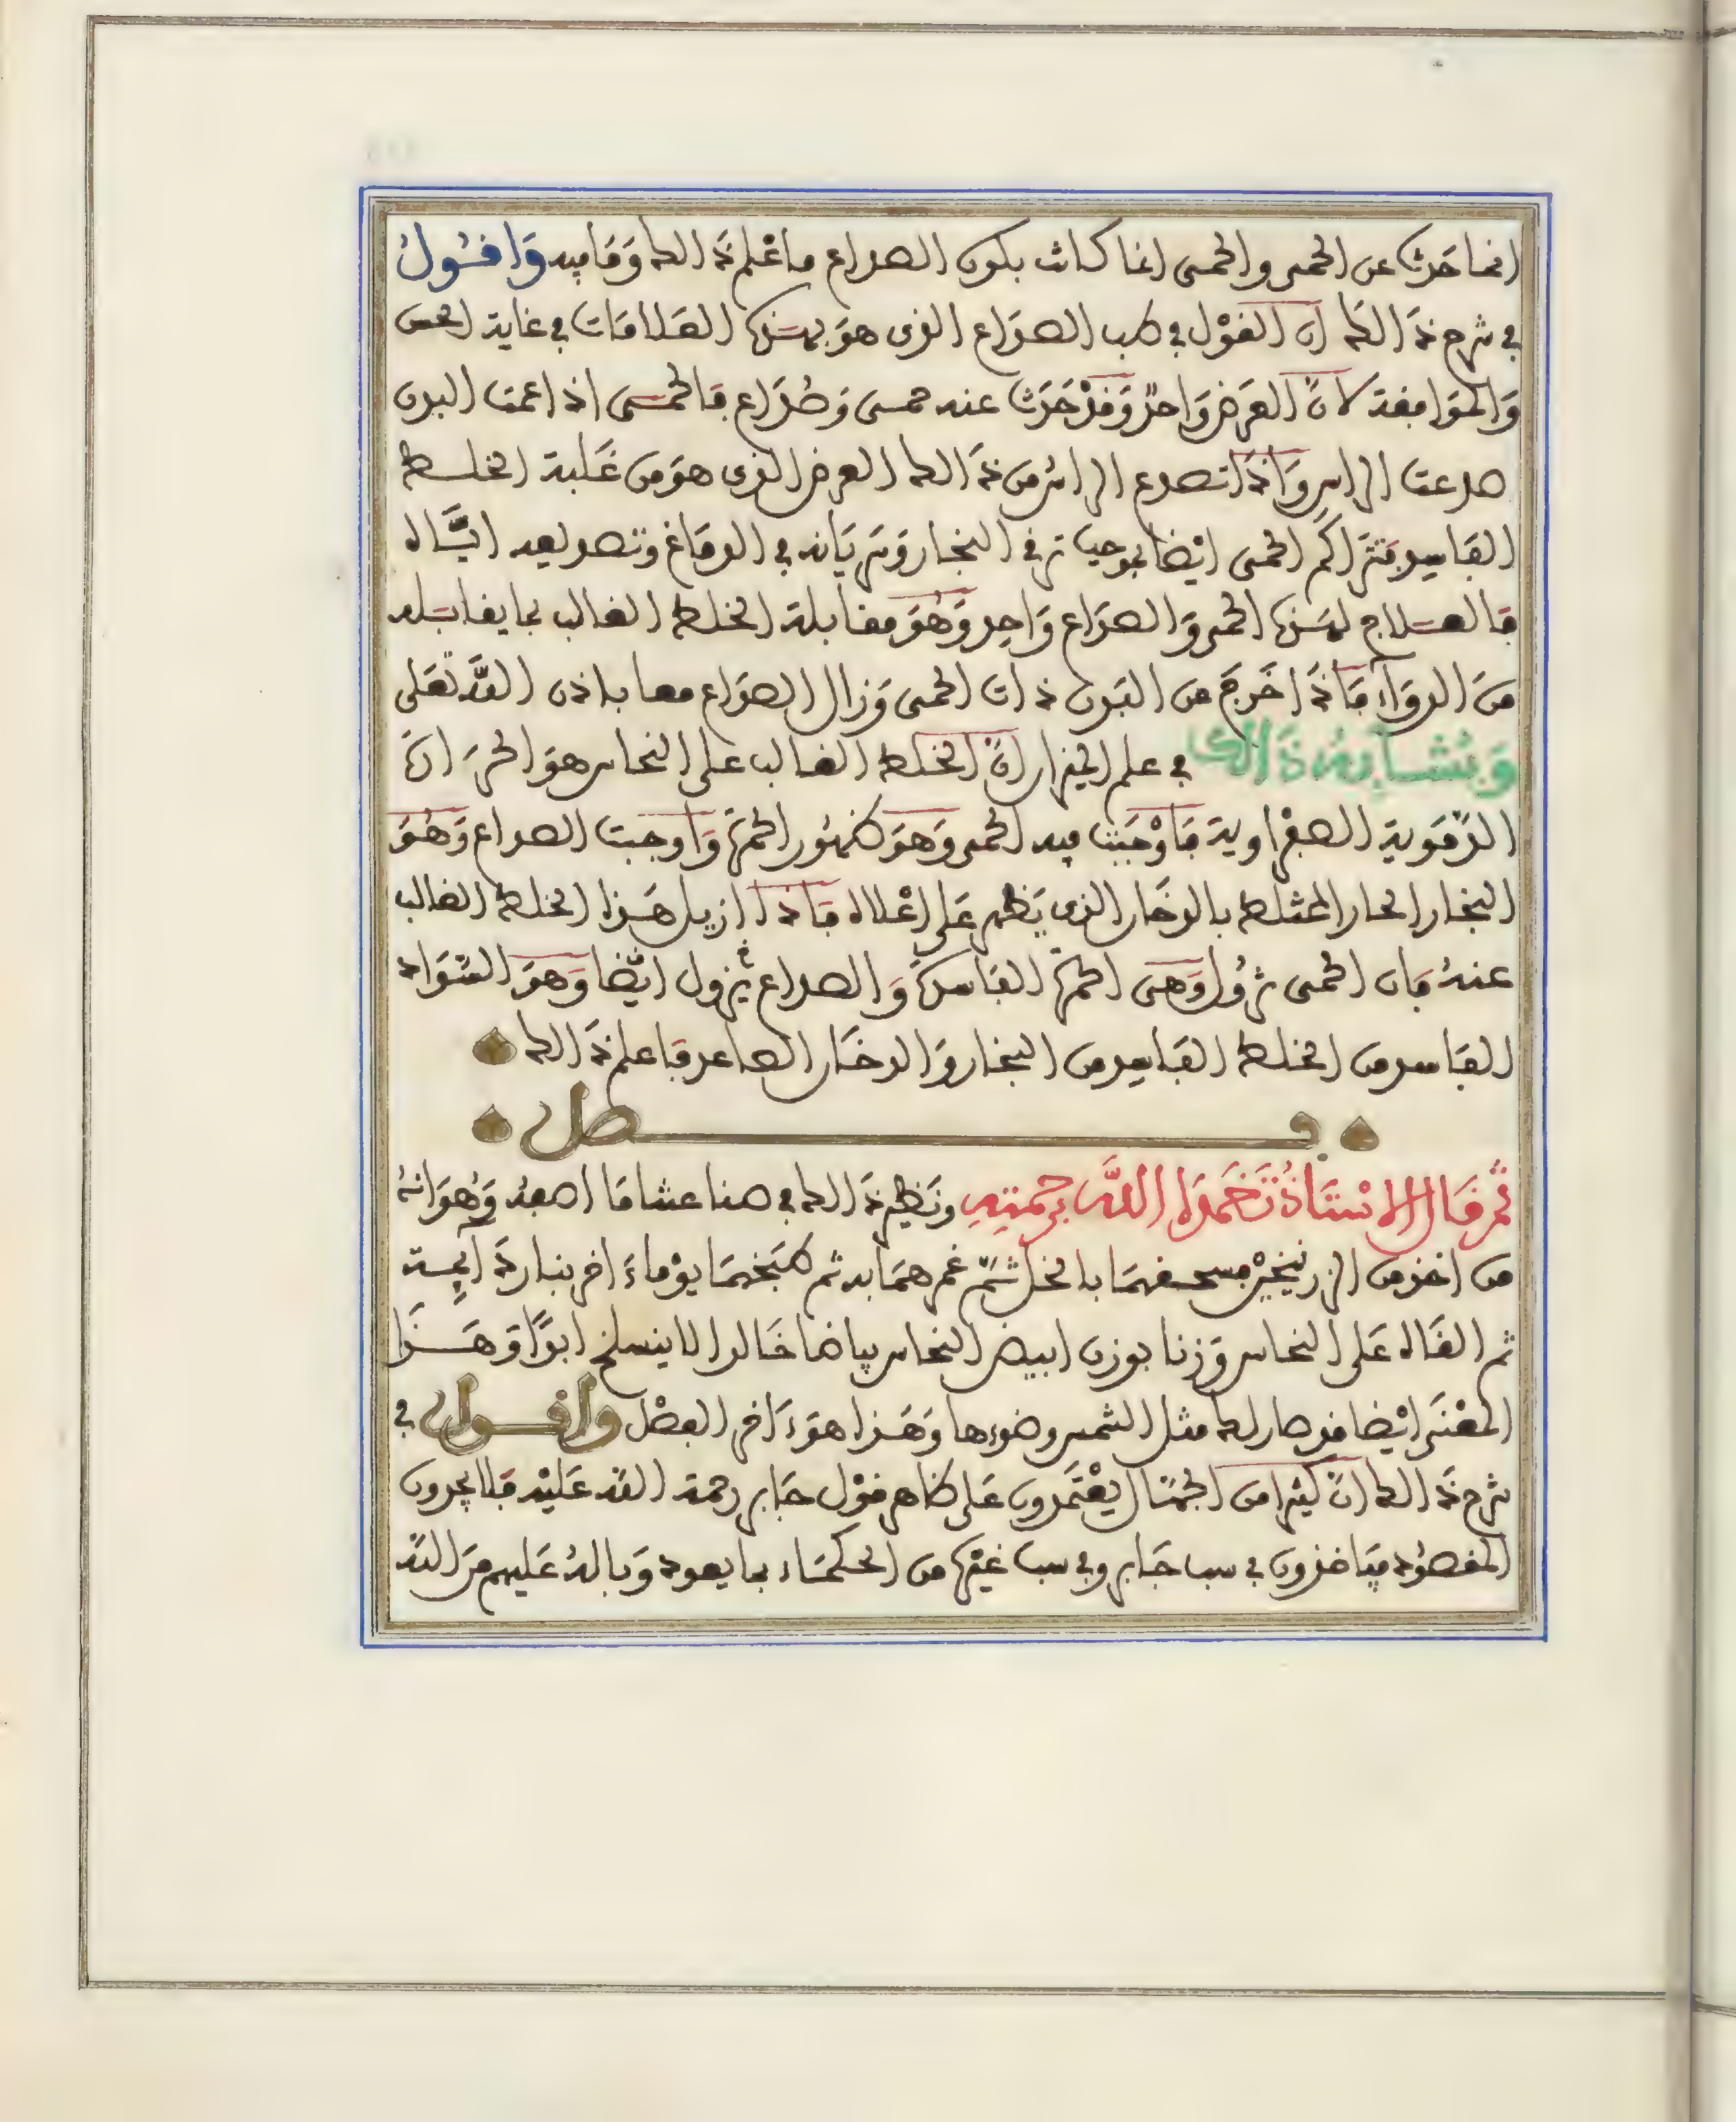 انما حدث عن الحمى والحمى انما كانت بكون الصداع فاعلم ذالك وما فيه وَاقُولُ
في شرح ذالك ان القول في طب الصداع الذى هو بهذه العلامات في غاية الحسن
والموافقة لان العرض واحد وقد حدث عنه حمى وصداع فالحمى اذا عمت البدن
صدعت الراس واذا تصدع الراس من ذالك العرض الذى هو من غلبة الخلط
الفاسد فتتراكم الحمى ايضا بموجبات ترقى البخار وسريانه في الدماغ وتصديعه اياه
فالعلاج لهذه الحمى والصداع واحد وهو مقابلة الخلط الغالب بما يقابله
من الدواء فاذا خرج من البدن ذات الحمى وزال الصداع معا باذن الله تعلى
وَيُشَابِهُ ذَالِكَ في علم الميزان ان الخلط الغالب على النحاس هو الحرارة
الدموية الصفراوية فاوجبت فيه الحمى وهو ظهور الحمرة واوجبت الصداع وهو
البخار الحار المختلط بالدخان الذى يظهر على اعلاه فاذا ازيل هذا الخلط الغالب
عنه فان الحمى تزول وهى الحمرة الفاسدة والصداع يزول ايضا وهو السواد
الفاسد من الخلط الفاسد من البخار والدخان الصاعد فاعلم ذالك
فصل
ثم قال الاستاذ تغمده الله برحمته ونظير ذالك في صناعتنا ما اصفه وهو انه
من اخذ من الزرنيخين فسحقهما بالخل ثم غمرهما به ثم طبخهما يوما ءاخر بنار ذآئبة
ثم القاه على النحاس وزنا بوزن ابيض النحاس بياضا خالدا لا ينسلخ ابدا وهذا
المعنى ايضا قد صار لك مثل الشمس وضوءها وهذا هو ءاخر الفصل وَاقُول في
شرح ذالك ان كثيرا من الجهال يعتمدون على ظاهر قول جابر رحمة الله عليه فلا يجدون
المقصود فياخذون في سب جابر وفي سب غيره من الحكماء بما يعود وباله عليهم من الله